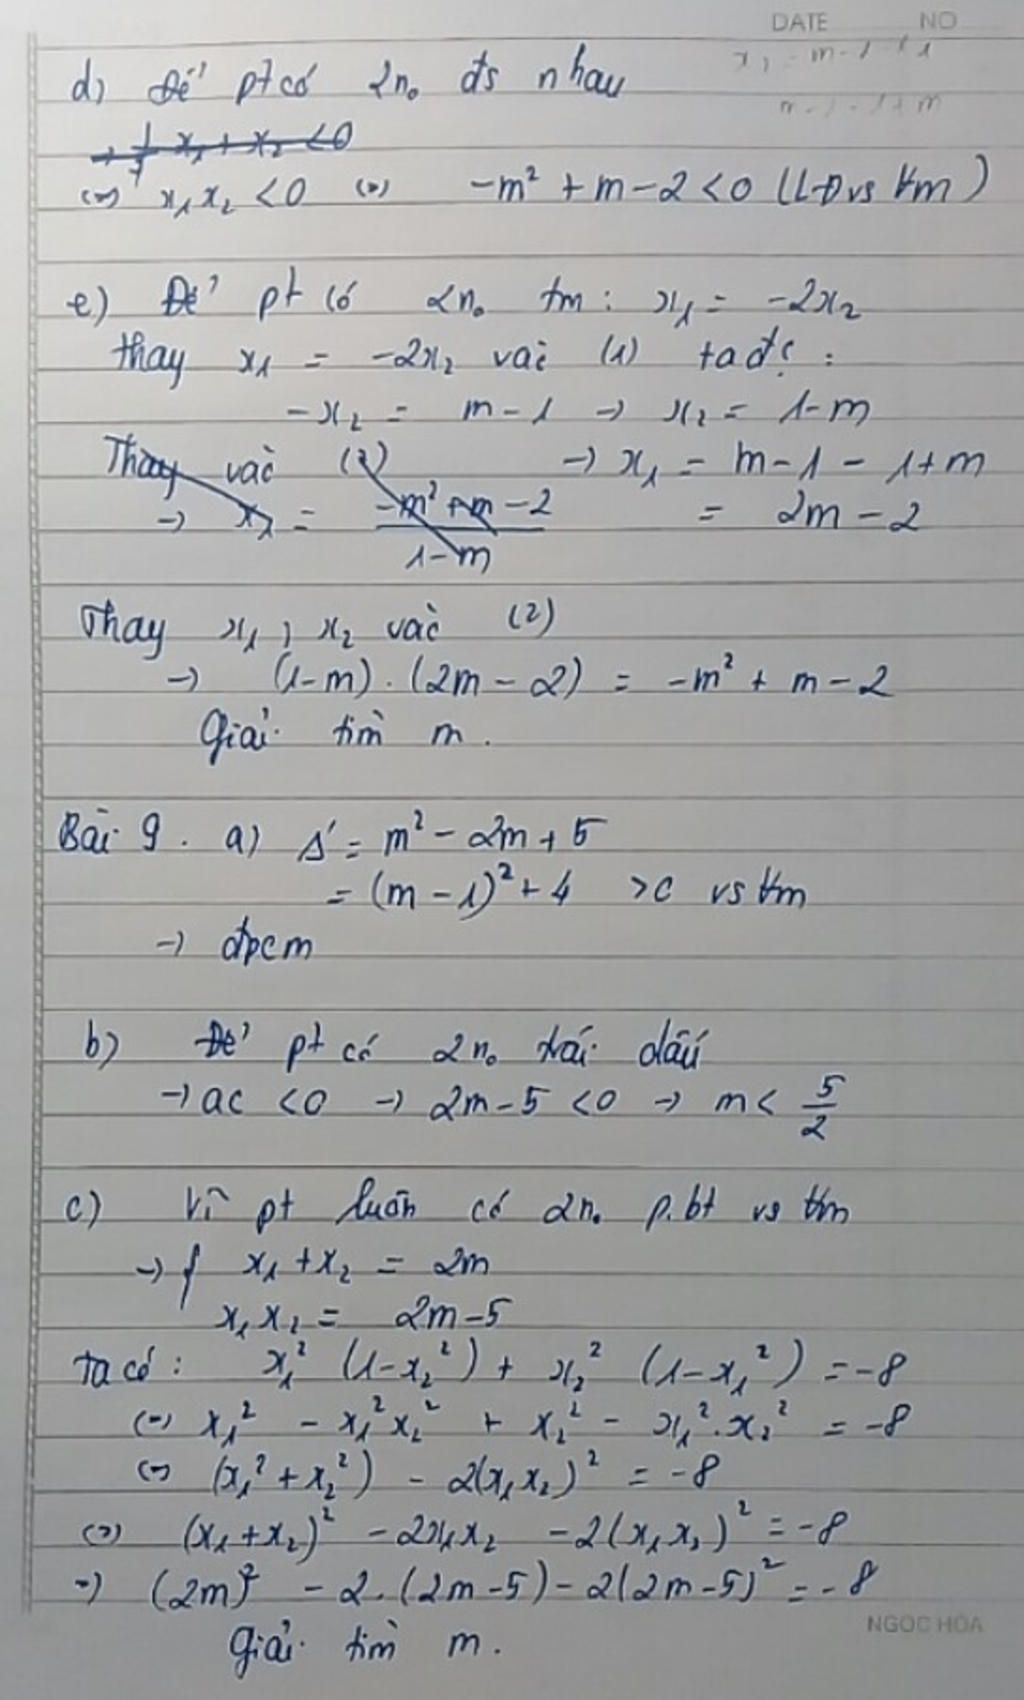 DATE NO
x₁ = m-1+1
m-1-1+m
d) Để pt có 2n₀ đs nhau
→ x₁ + x₂ < 0
(=) x₁x₂ < 0 (=) -m² + m - 2 < 0 (LĐ vs ∀m)
e) Để pt có 2n₀ tm: x₁ = -2x₂
thay x₁ = -2x₂ vào (1) ta đc:
-x₂ = m-1 → x₂ = 1-m
Thay vào (2) → x₁ = m-1-1+m
→ x₁ = (-m² + m - 2)/(1-m) = 2m-2
Thay x₁; x₂ vào (2)
→ (1-m).(2m-2) = -m² + m - 2
Giải tìm m.
Bài 9. a) Δ' = m² - 2m + 5
= (m-1)² + 4 >0 vs ∀m
→ đpcm
b) Để pt có 2n₀ trái dấu
→ ac < 0 → 2m-5 < 0 → m < 5/2
c) Vì pt luôn có 2n₀ p.bt vs ∀m
→ { x₁ + x₂ = 2m
x₁x₂ = 2m-5
ta có: x₁² (1-x₂²) + x₂² (1-x₁²) = -8
(=) x₁² - x₁²x₂² + x₂² - x₁².x₂² = -8
(=) (x₁² + x₂²) - 2(x₁x₂)² = -8
(=) (x₁+x₂)² - 2x₁x₂ - 2(x₁x₂)² = -8
→ (2m)² - 2.(2m-5) - 2(2m-5)² = -8
Giải tìm m.
NGOC HOA